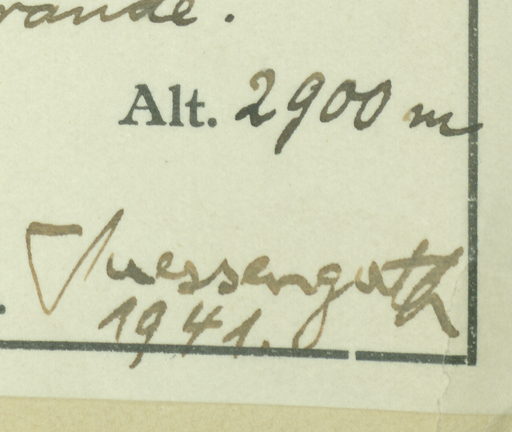 rande.
Alt. 2900 m
Suessenguth
1941.